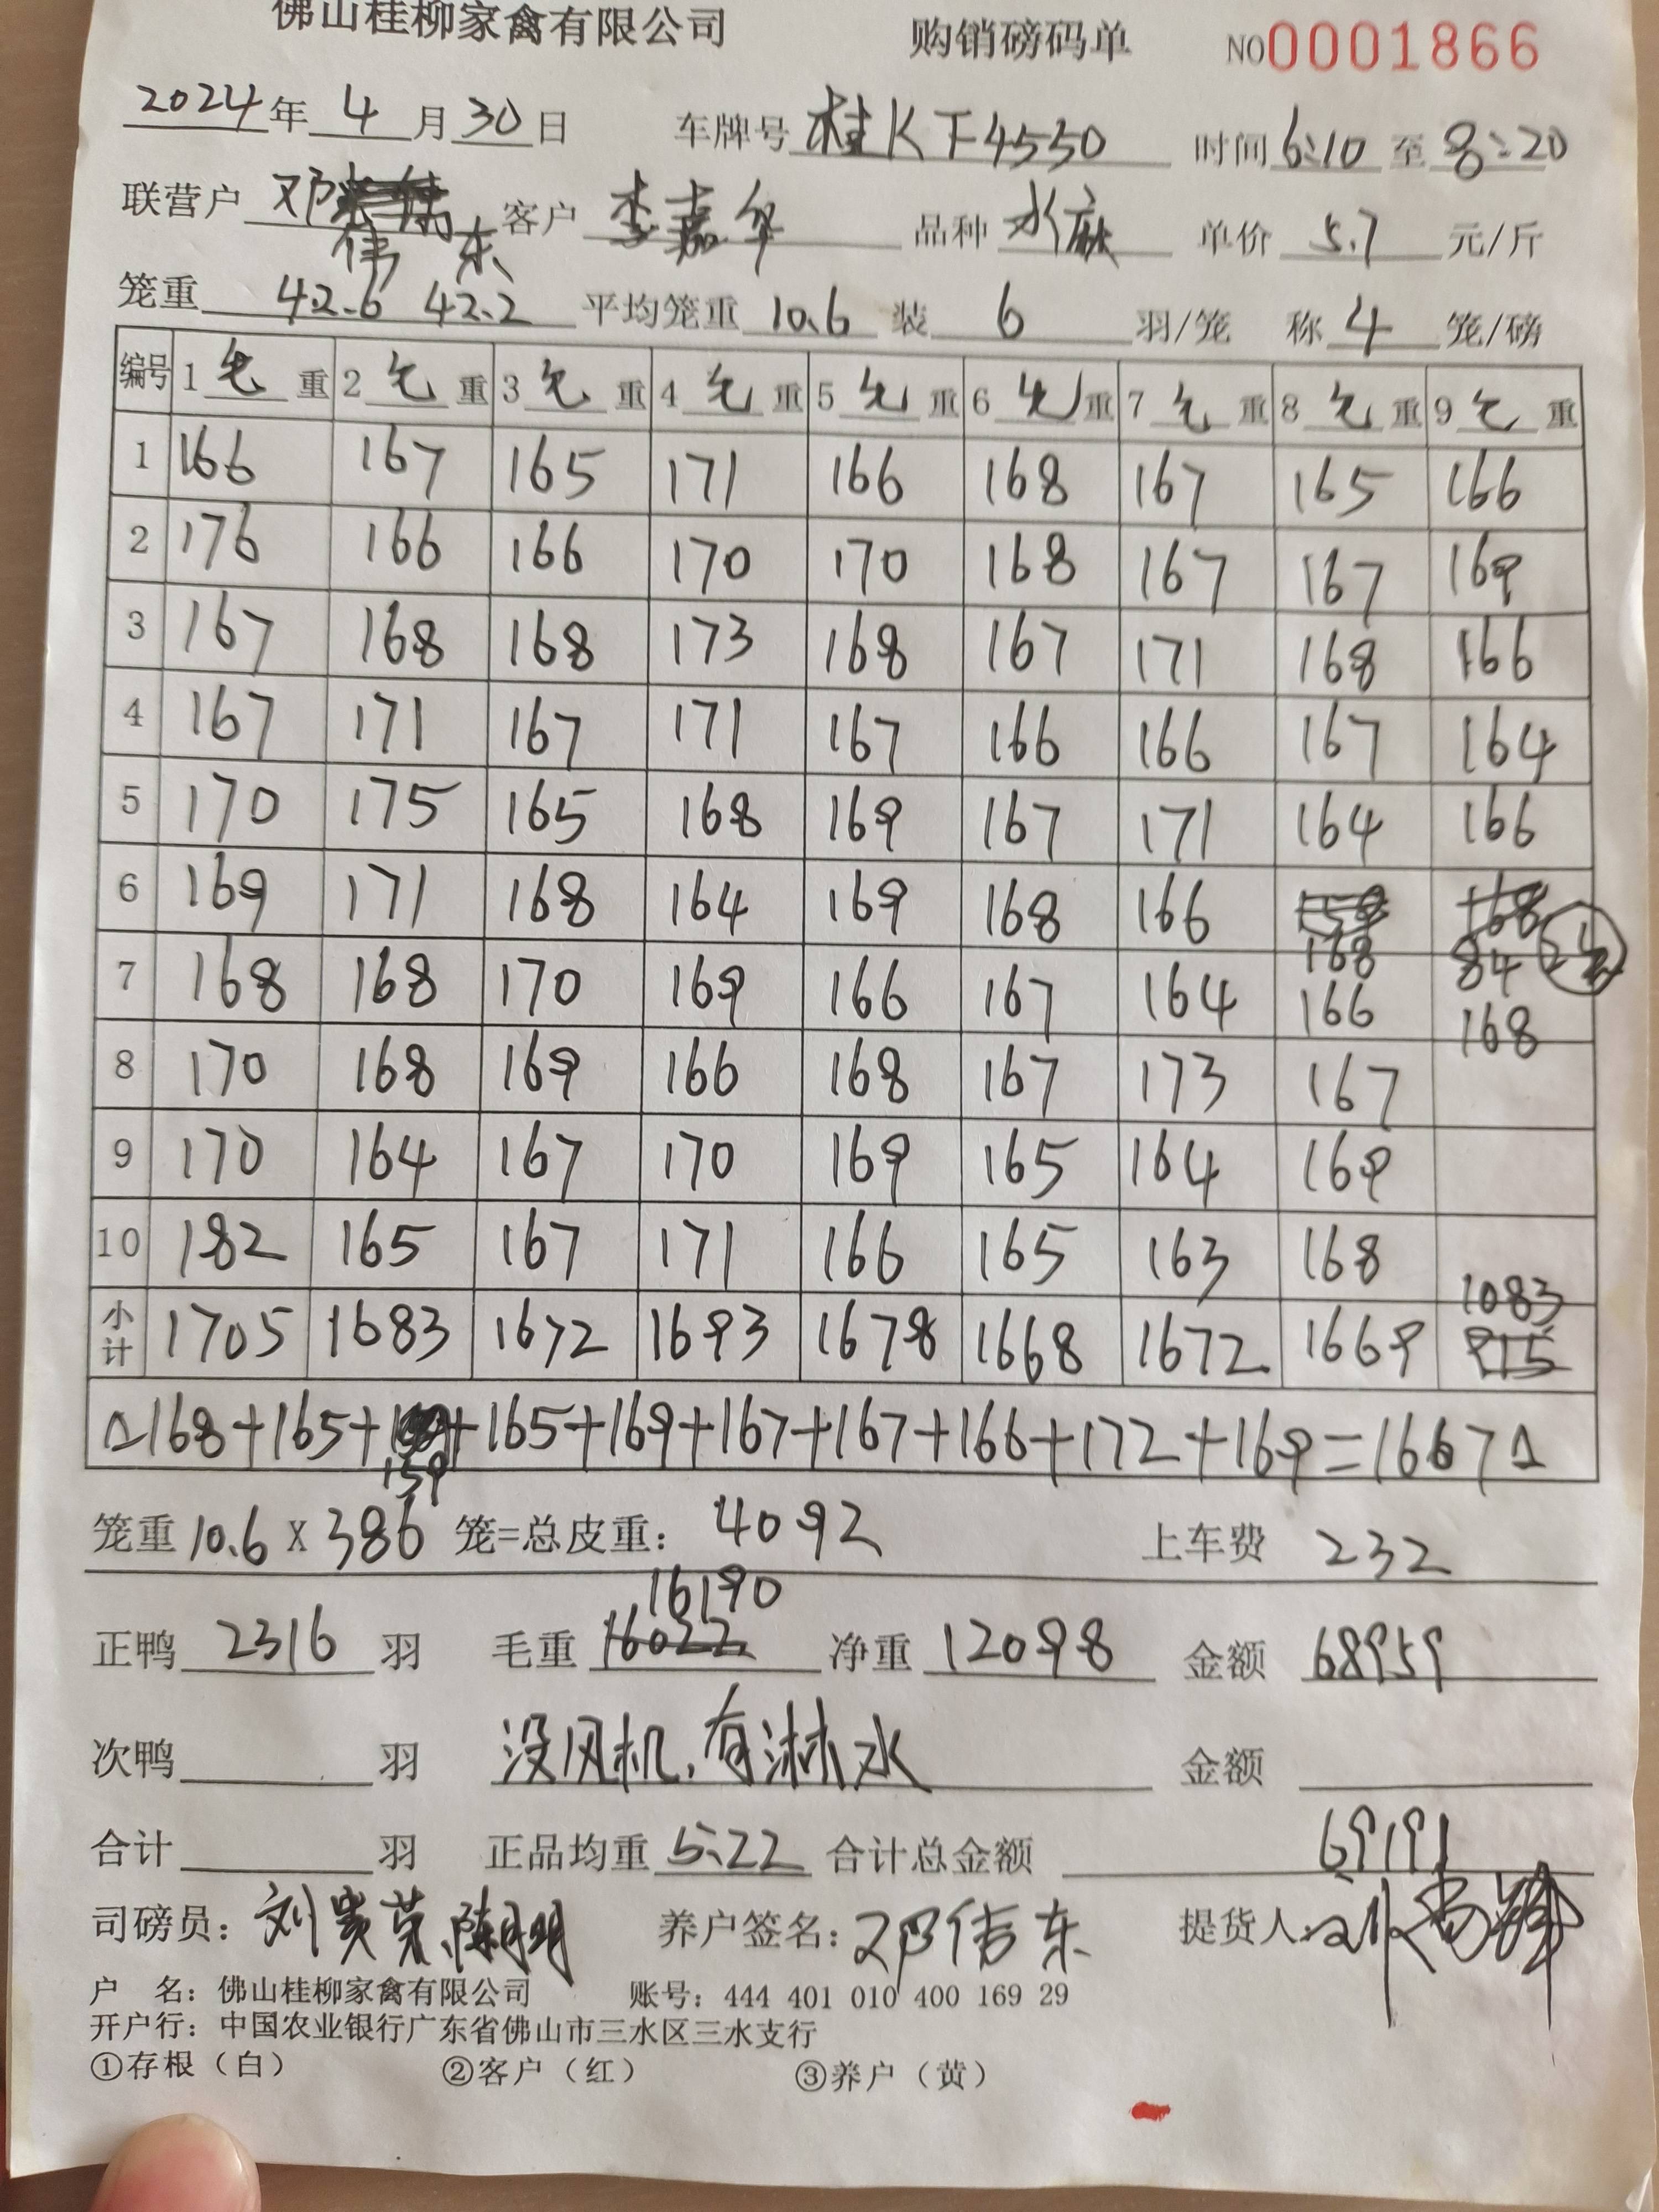 佛山桂柳家禽有限公司 购销磅码单 NO0001866
2024年4月30日 车牌号桂KF4550 时间6:10至8:20
联营户 邓 客户 李嘉华 品种 水麻 单价 5.7 元/斤
伟东
笼重 42.6 42.2 平均笼重 10.6 装 6 羽/笼 称 4 笼/磅
编号 1毛重 2毛重 3毛重 4毛重 5毛重 6毛重 7毛重 8毛重 9毛重
1 166 167 165 171 166 168 167 165 166
2 176 166 166 170 170 168 167 167 169
3 167 168 168 173 168 167 171 168 166
4 167 171 167 171 167 166 166 167 164
5 170 175 165 168 169 167 171 164 166
6 169 171 168 164 169 168 166 159 168
168 84
7 168 168 170 169 166 167 164 166 168
8 170 168 169 166 168 167 173 167
9 170 164 167 170 169 165 164 169
10 182 165 167 171 166 165 163 168
1083
小计 1705 1683 1672 1693 1678 1668 1672 1669 915
△168+165+ +165+169+167+167+166+172+169=1667△
159
笼重10.6 X 386 笼=总皮重: 4092 上车费 232
16190
正鸭 2316 羽 毛重 16022 净重 12098 金额 68959
次鸭 羽 没风机,有淋水 金额
合计 羽 正品均重 5.22 合计总金额 69191
司磅员: 刘贵荣、陈明 养户签名: 邓伟东 提货人:
户 名: 佛山桂柳家禽有限公司 账号: 444 401 010 400 169 29
开户行: 中国农业银行广东省佛山市三水区三水支行
①存根（白） ②客户（红） ③养户（黄）